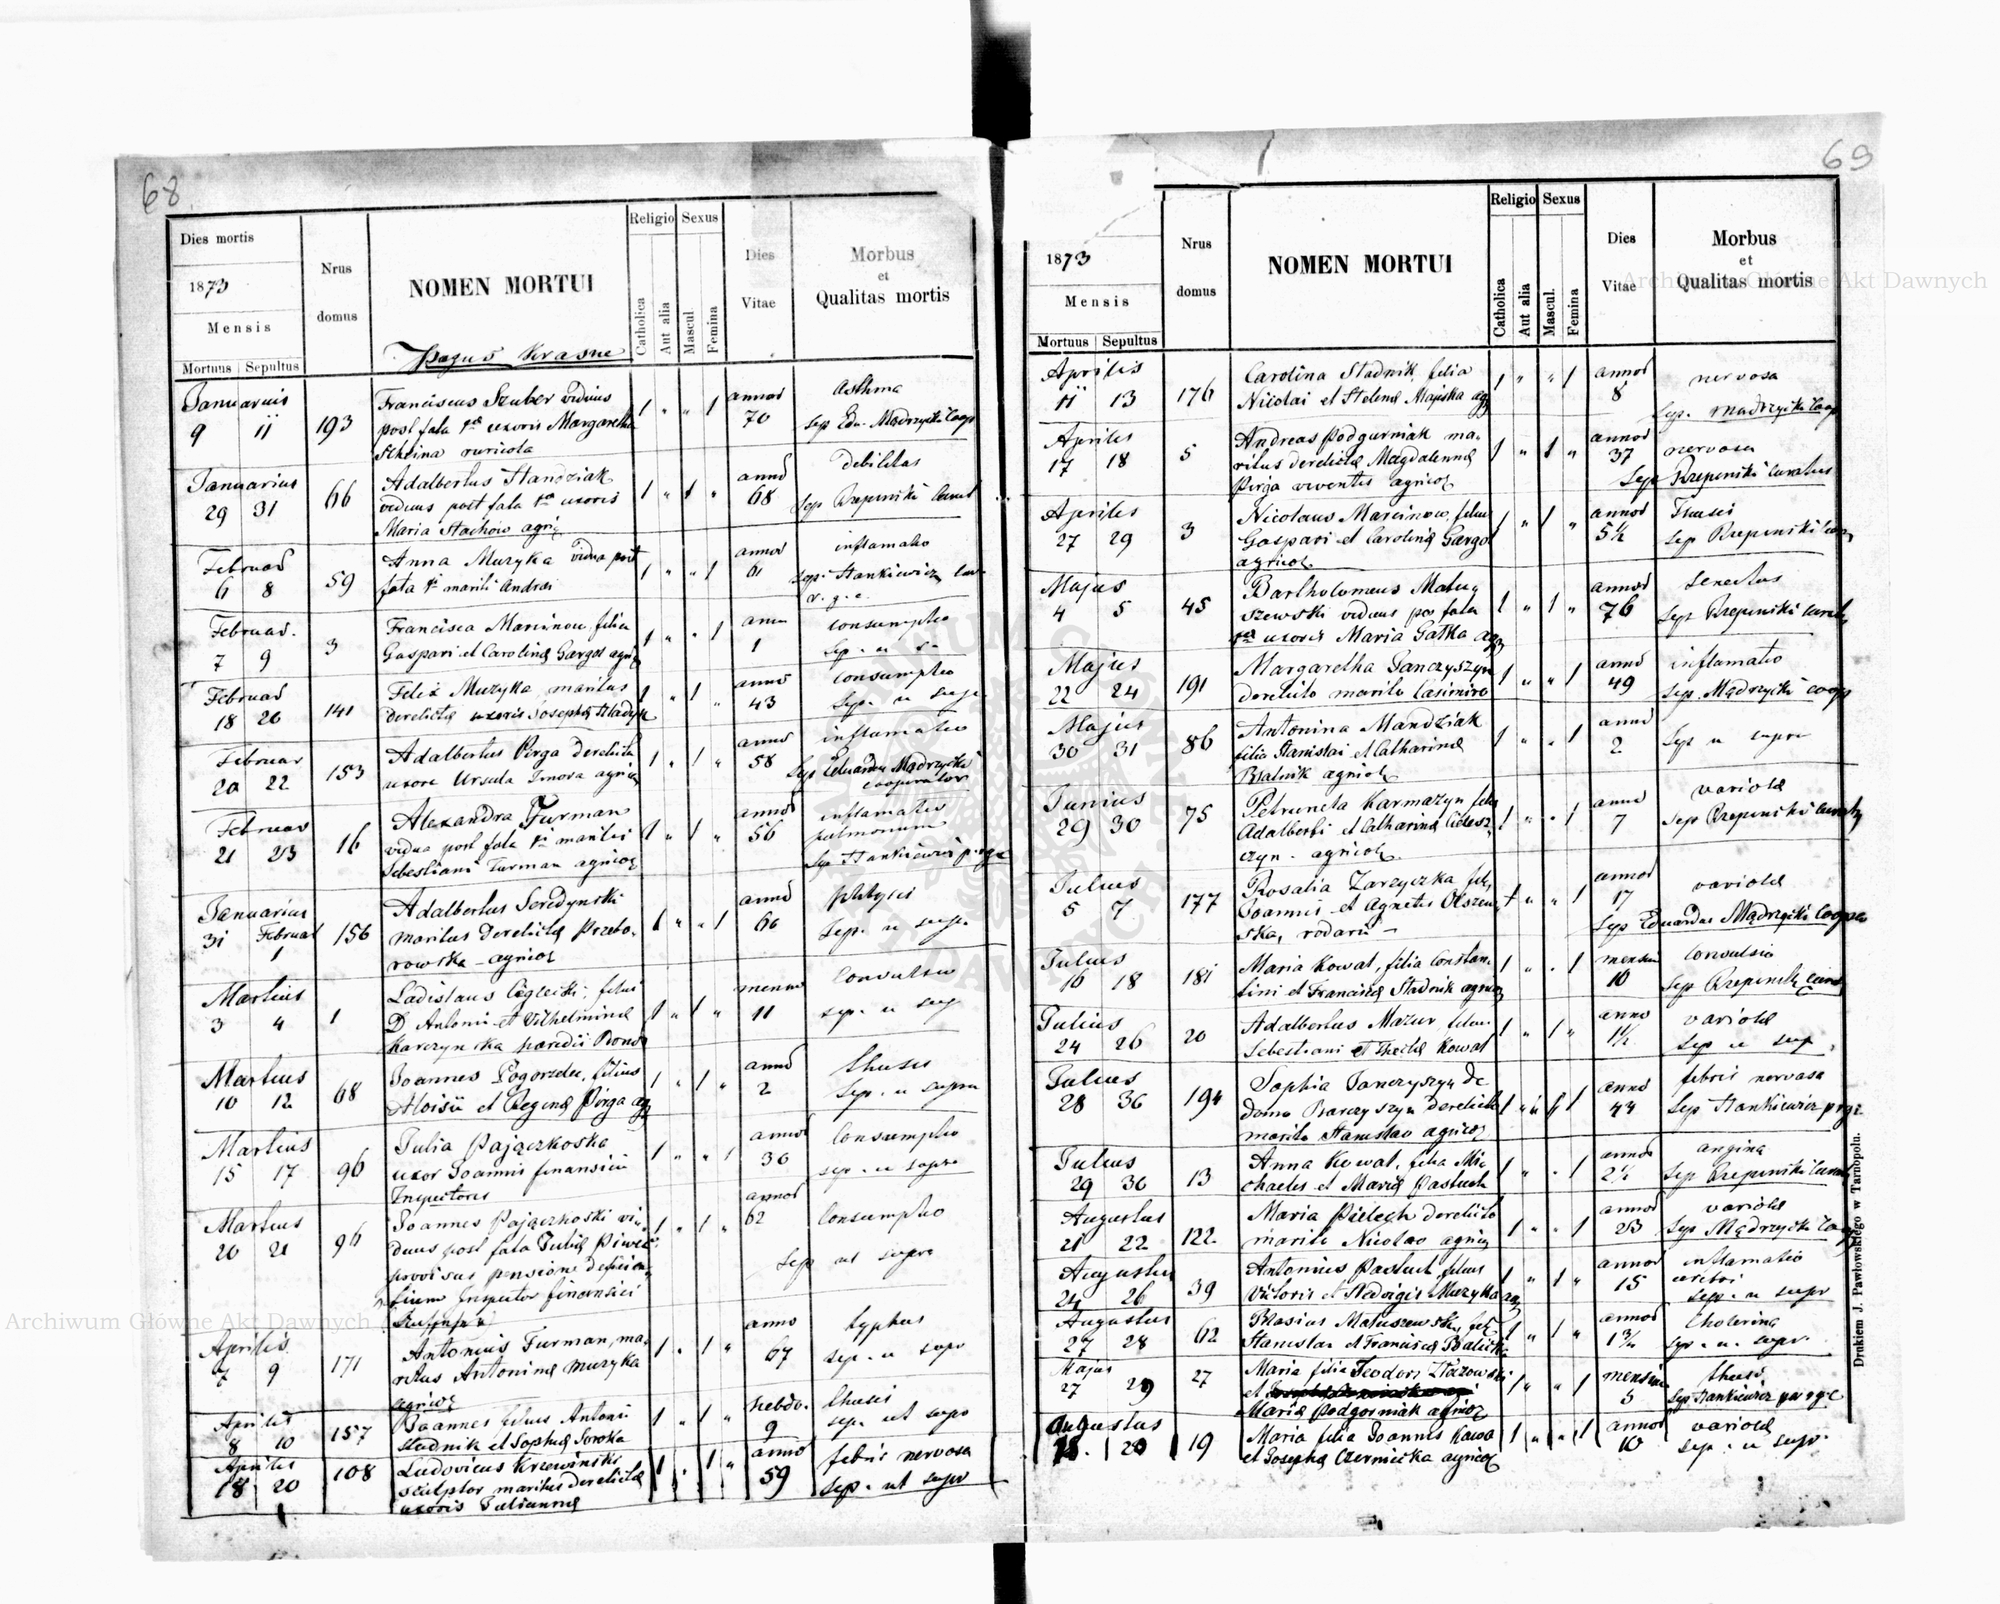 68
Dies mortis
1873
Mensis
Mortuus Sepultus
Nrus
domus
NOMEN MORTUI
Pagus Krasne
Religio
Catholica
Aut alia
Sexus
Mascul.
Femina
Dies
Vitae
Morbus
et
Qualitas mortis
Januarius
9 11 193
Franciscus Szuber viduus
post fata 1ae uxoris Margaretha
ruricola
annos
70
Asthma
Sep Edu. Mądrzycki Coop
Januarius
29 31 66
Adalbertus Standziak
viduus post fata 1ae uxoris
Maria Stachow agric
annos
68
Debilitas
Sep Rzepinski Curat
Februar
6 8 59
Anna Muzyka vidua post
fata 1i mariti Andrei
annos
61
inflamatio
Sep. Stankiewicz
r. g. c.
Februar.
7 9 3
Francisca Marcinow, filia
Gaspari et Carolinæ Gargol agric
annu
1
consumptio
Sep. u s.
Februar
18 20 141
Felix Muzyka maritus
derelictæ uxoris Josephæ Hladyk
annos
43
consumptio
Sep. u supr
Februar
20 22 153
Adalbertus Pirga derelicta
uxore Ursula agric
annos
58
inflamatio
Sep Eduardus Mądrzycki
cooperator
Februar
21 23 16
Alexandra Furman
vidua post fata 1i mariti
Sebestiani Furman agricol
annos
56
inflamatio
pulmonum
Sep Stankiewicz p. r. g. c
Januarius
31 Februar
1 156
Adalbertus Seredynski
maritus derelictæ Przebo-
rowska agricol
annos
60
phtysis
Sep. u supr
Martius
3 4 1
Ladislaus Ceglecki, filius
D Antoni et Vilhelminæ
Karczynska
menses
11
Convulsio
sep. u sup
Martius
10 12 68
Joannes Pogorzelec, filius
Aloisii et Reginæ Pirga ag
annos
2
thusis
Sep. u supra
Martius
15 17 96
Julia Pajączkoska
uxor Joannis finansium
Inspectoris
annos
36
Consumptio
sep. u supra
Martius
20 21 96
Joannes Pajączkoski vi-
duus post fata Juliæ
provisus pensione
Inspector finansiei
annos
62
Consumptio
Sep ut supra
Aprilis
7 9 171
Antonius Furman, ma-
ritus Antoninæ Muzyka
agricol
anno
67
typhus
sep. u supr
Aprilis
8 10 157
Joannes filius Antoni
Stadnik et Sophiæ Soroka
hebdo.
9
thusis
sep. ut supr
Aprilis
18 20 108
Ludovicus Krzewinski
sculptor maritus derelictæ
uxoris Julianna
annos
59
febris nervosa
Sep. ut supr
69
1873
Mensis
Mortuus Sepultus
Nrus
domus
NOMEN MORTUI
Religio
Catholica
Aut alia
Sexus
Mascul.
Femina
Dies
Vitae
Morbus
et
Qualitas mortis
Aprilis
11 13 176
Carolina Stadnik, filia
Nicolai et Helenæ Majska ag
annos
8
nervosa
Sep. Mądrzycki Coop
Aprilis
17 18 5
Andreas Podgurniak ma-
ritus derelictæ Magdalenna
Pirga viventis agricol
annos
37
nervosa
Sep Rzepinski Curatus
Aprilis
27 29 3
Nicolaus Marcinow, filius
Gaspari et Carolinæ Gargol
agricol
annos
5½
Thusis
Sep Rzepinski Cur
Majus
4 5 45
Bartholomeus Matu-
szewski viduus pos fata
1ae uxoris Maria Gatka ag
annos
76
Senectus
Sep Rzepinski Curatus
Majus
22 24 191
Margaretha Janczyszyn
derelicto marito Casimiro
annos
49
inflamatio
Sep. Mądrzycki coop
Majus
30 31 86
Antonina Mandziak
filia Stanislai et Catharinæ
Bsalnik agricol
annos
2
Sep u supra
Junius
29 30 75
Petrunela Karmazyn filia
Adalberti et Catharinæ
czyn. agricol
annos
7
variola
Sep Rzepinski Curatus
Julius
5 7 177
Rosalia Zarzyczka filia
Joannis et Agnetis Olszew-
ska, rodarii
annos
17
variola
Sep Eduardus Mądrzycki Cooper
Julius
16 18 181
Maria Kowal, filia Constan-
tini et Franciscæ Stadnik agricol
menses
10
Convulsio
Sep Rzepinski Curat
Julius
24 26 20
Adalbertus Mazur, filius
Sebestiani et Theclæ Kowal
anno
1½
variola
Sep u sup
Julius
28 30 194
Sophia Janczyszyn de
domo Barczyszyn derelicto
marito Stanislao agricol
annos
44
febris nervosa
Sep Stankiewicz p r g c
Julius
29 30 13
Anna Kowal, filia Mi-
chaelis et Mariæ Pastuch
annos
2½
angina
Sep Rzepinski Curat
Augustus
21 22 122
Maria Pielech derelicto
marito Nicolao agricol
annos
23
variola
Sep Mądrzycki Coop
Augustus
24 26 39
Antonius Pastuch, filius
Victoris et Hedvigis Muzyka ag
annos
15
inflamatio
cerebri
Sep. u supr
Augustus
27 28 62
Blasius Matuszewski, fil.
Stanislai et Franciscæ
annos
1¾
Cholerina
Sep. u. supr.
Majus
27 29 27
Maria filia Teodori
et
Mariæ Podgorniak agricol
menses
5
thusis
Sep Stankiewicz par r g c
Augustus
20 19
Maria filia Joannis Kawa
et Josephæ Czerniecka agricol
annos
10
variola
sep. u supr
Drukiem J. Pawłowskiego w Tarnopolu.
Archiwum Główne Akt Dawnych
Archiwum Główne Akt Dawnych
ARCHIWUM GŁÓWNE AKT DAWNYCH